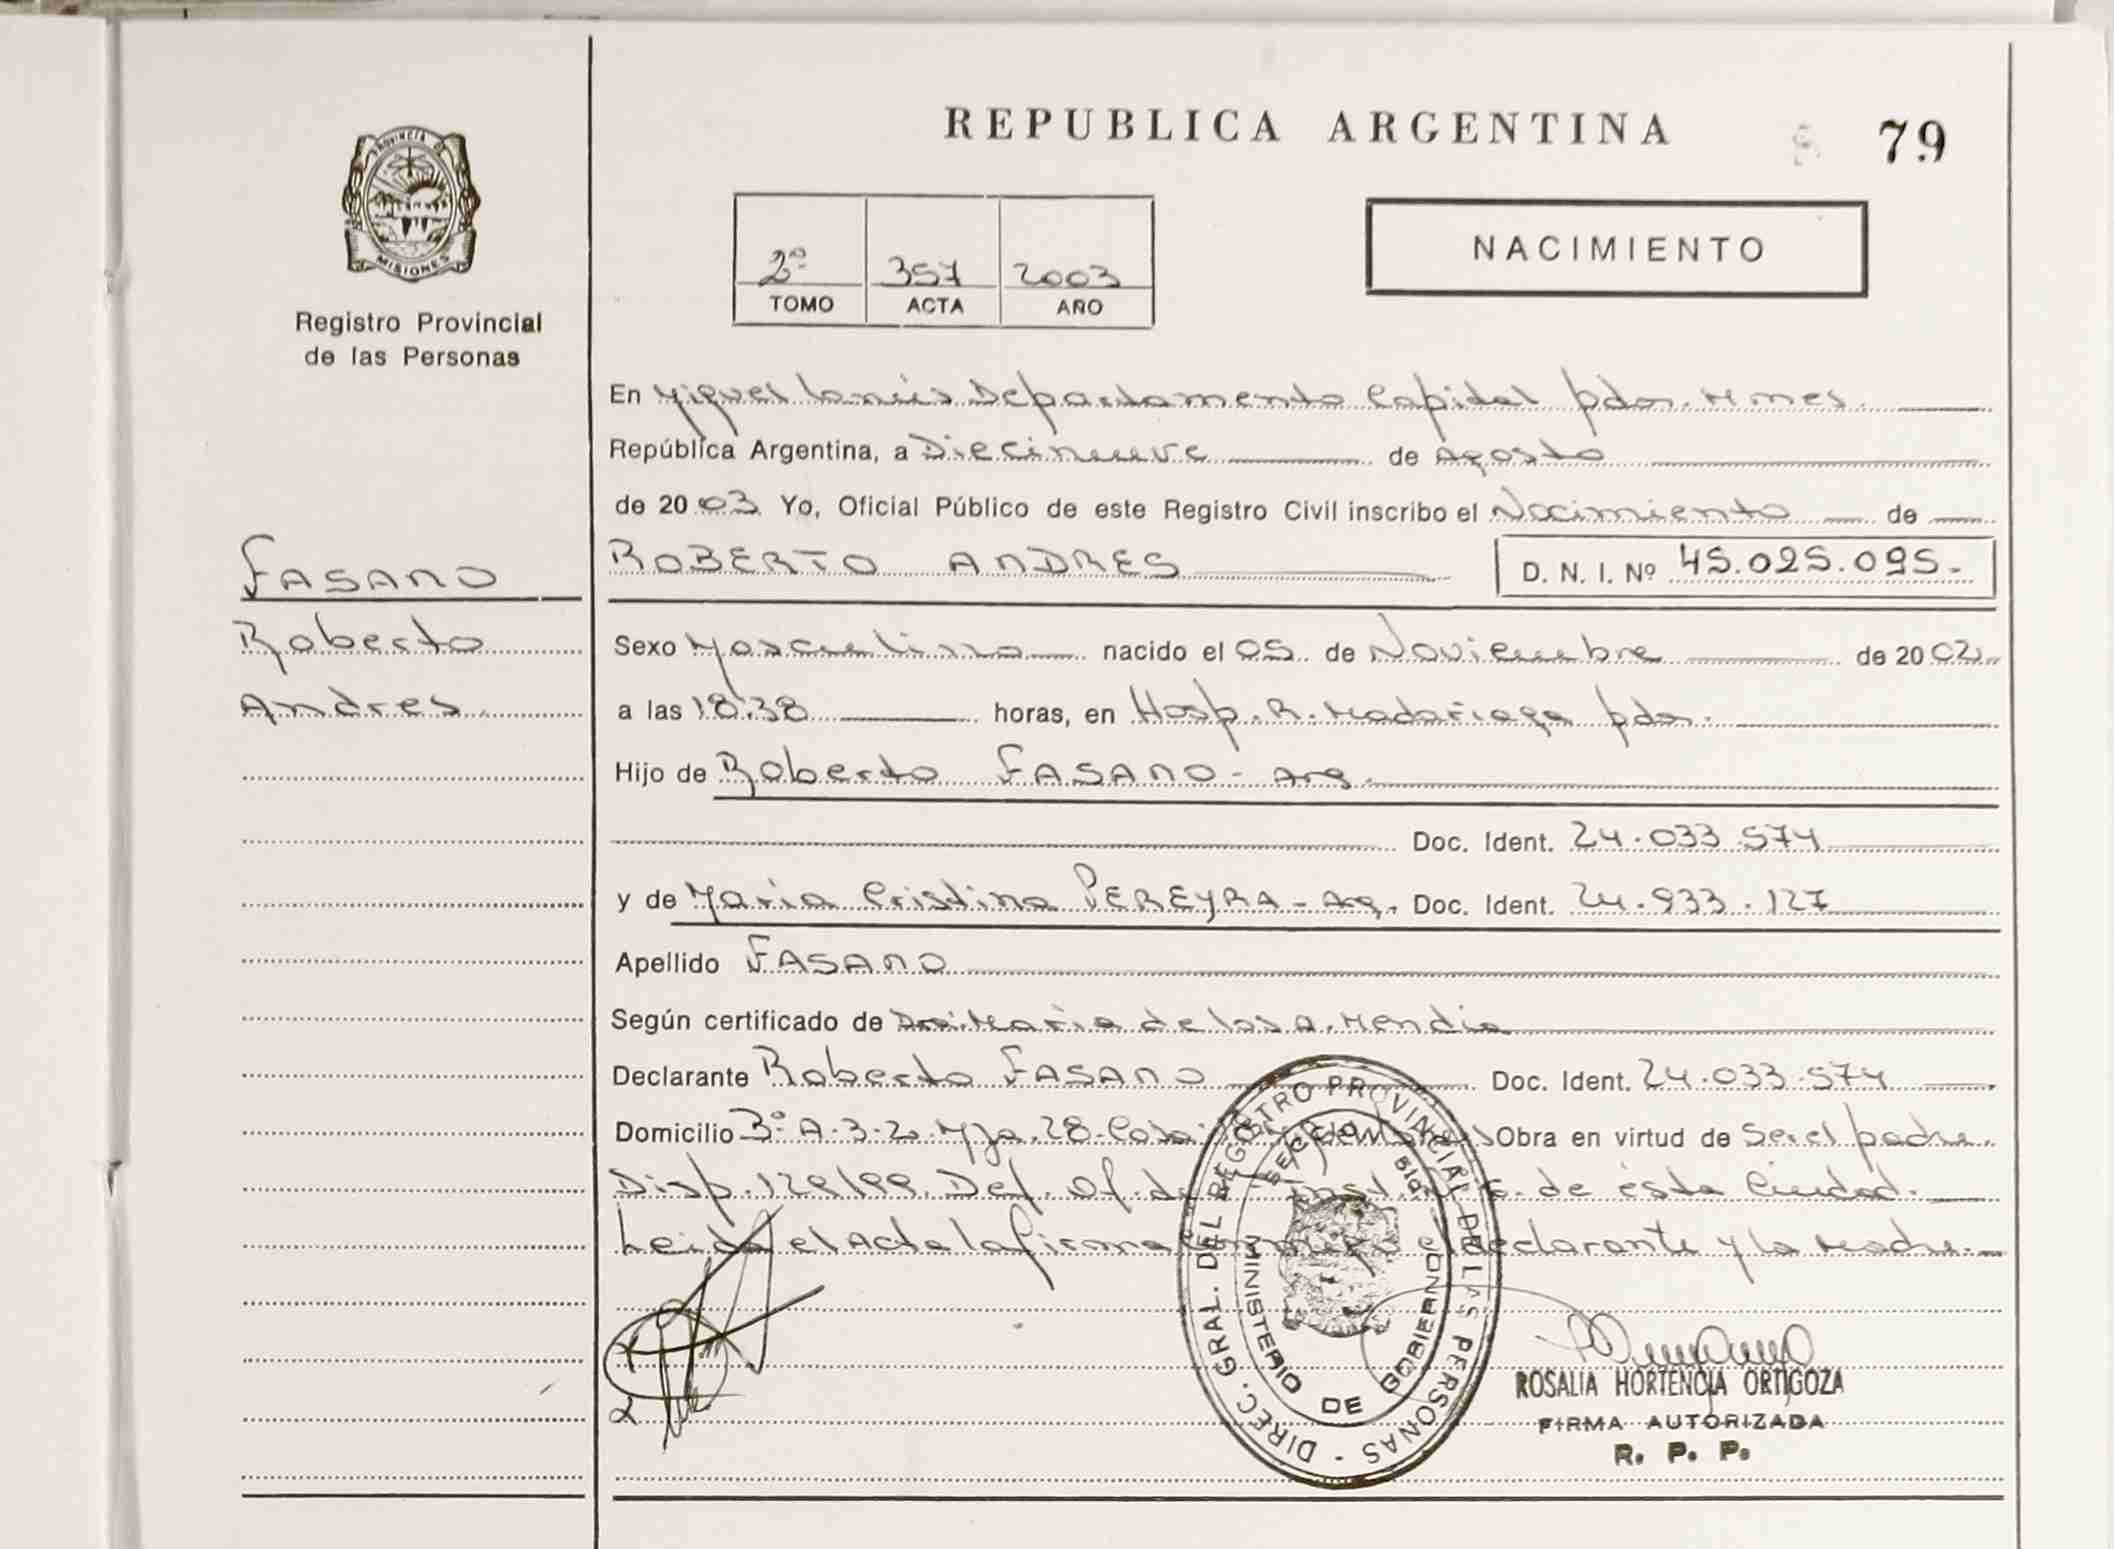 PROVINCIA DE
MISIONES
Registro Provincial
de las Personas
FASANO
Roberto
Andres
REPUBLICA ARGENTINA
79
2º 357 2003
TOMO ACTA AÑO
NACIMIENTO
En Miguel Lanús Departamento Capital pdas. Mnes.
República Argentina, a Diecinueve de Agosto
de 2003 Yo, Oficial Público de este Registro Civil inscribo el Nacimiento de
ROBERTO ANDRES D. N. I. Nº 45.025.095.-
Sexo Masculino nacido el 05 de Noviembre de 2002
a las 18:38 horas, en Hosp. R. Madariaga pdas.
Hijo de Roberto FASANO - Arg.
Doc. Ident. 24.033.574
y de Maria Cristina PEREYRA - Arg. Doc. Ident. 24.933.127
Apellido FASANO
Según certificado de Dra. Maria de los A. Mendia
Declarante Roberto FASANO Doc. Ident. 24.033.574
Domicilio 3º A-3-2 Mza. 28 Obra en virtud de Ser el padre.
Disp. 129/99. Def. Of. de ésta Ciudad.
Leida el Acta la firma el declarante y la Madre.
DIREC. GRAL. DEL REGISTRO PROVINCIAL DE LAS PERSONAS -
MINISTERIO DE GOBIERNO
ROSALIA HORTENCIA ORTIGOZA
FIRMA AUTORIZADA
R. P. P.